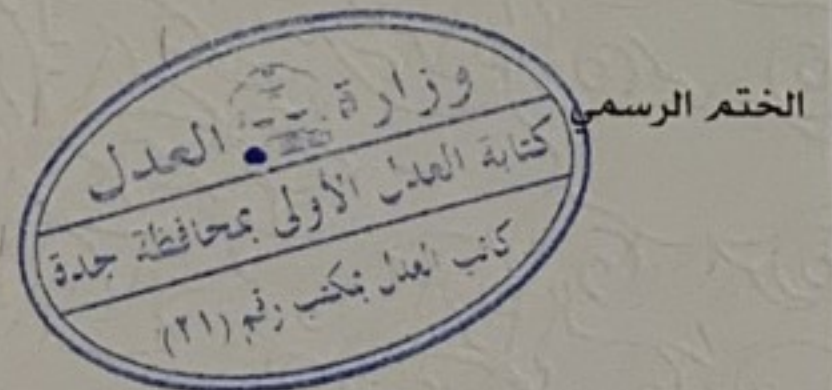 الختم الرسمي
وزارة العدل
كتابة العدل الأولى بمحافظة جدة
كاتب العدل بمكتب رقم (٢١)